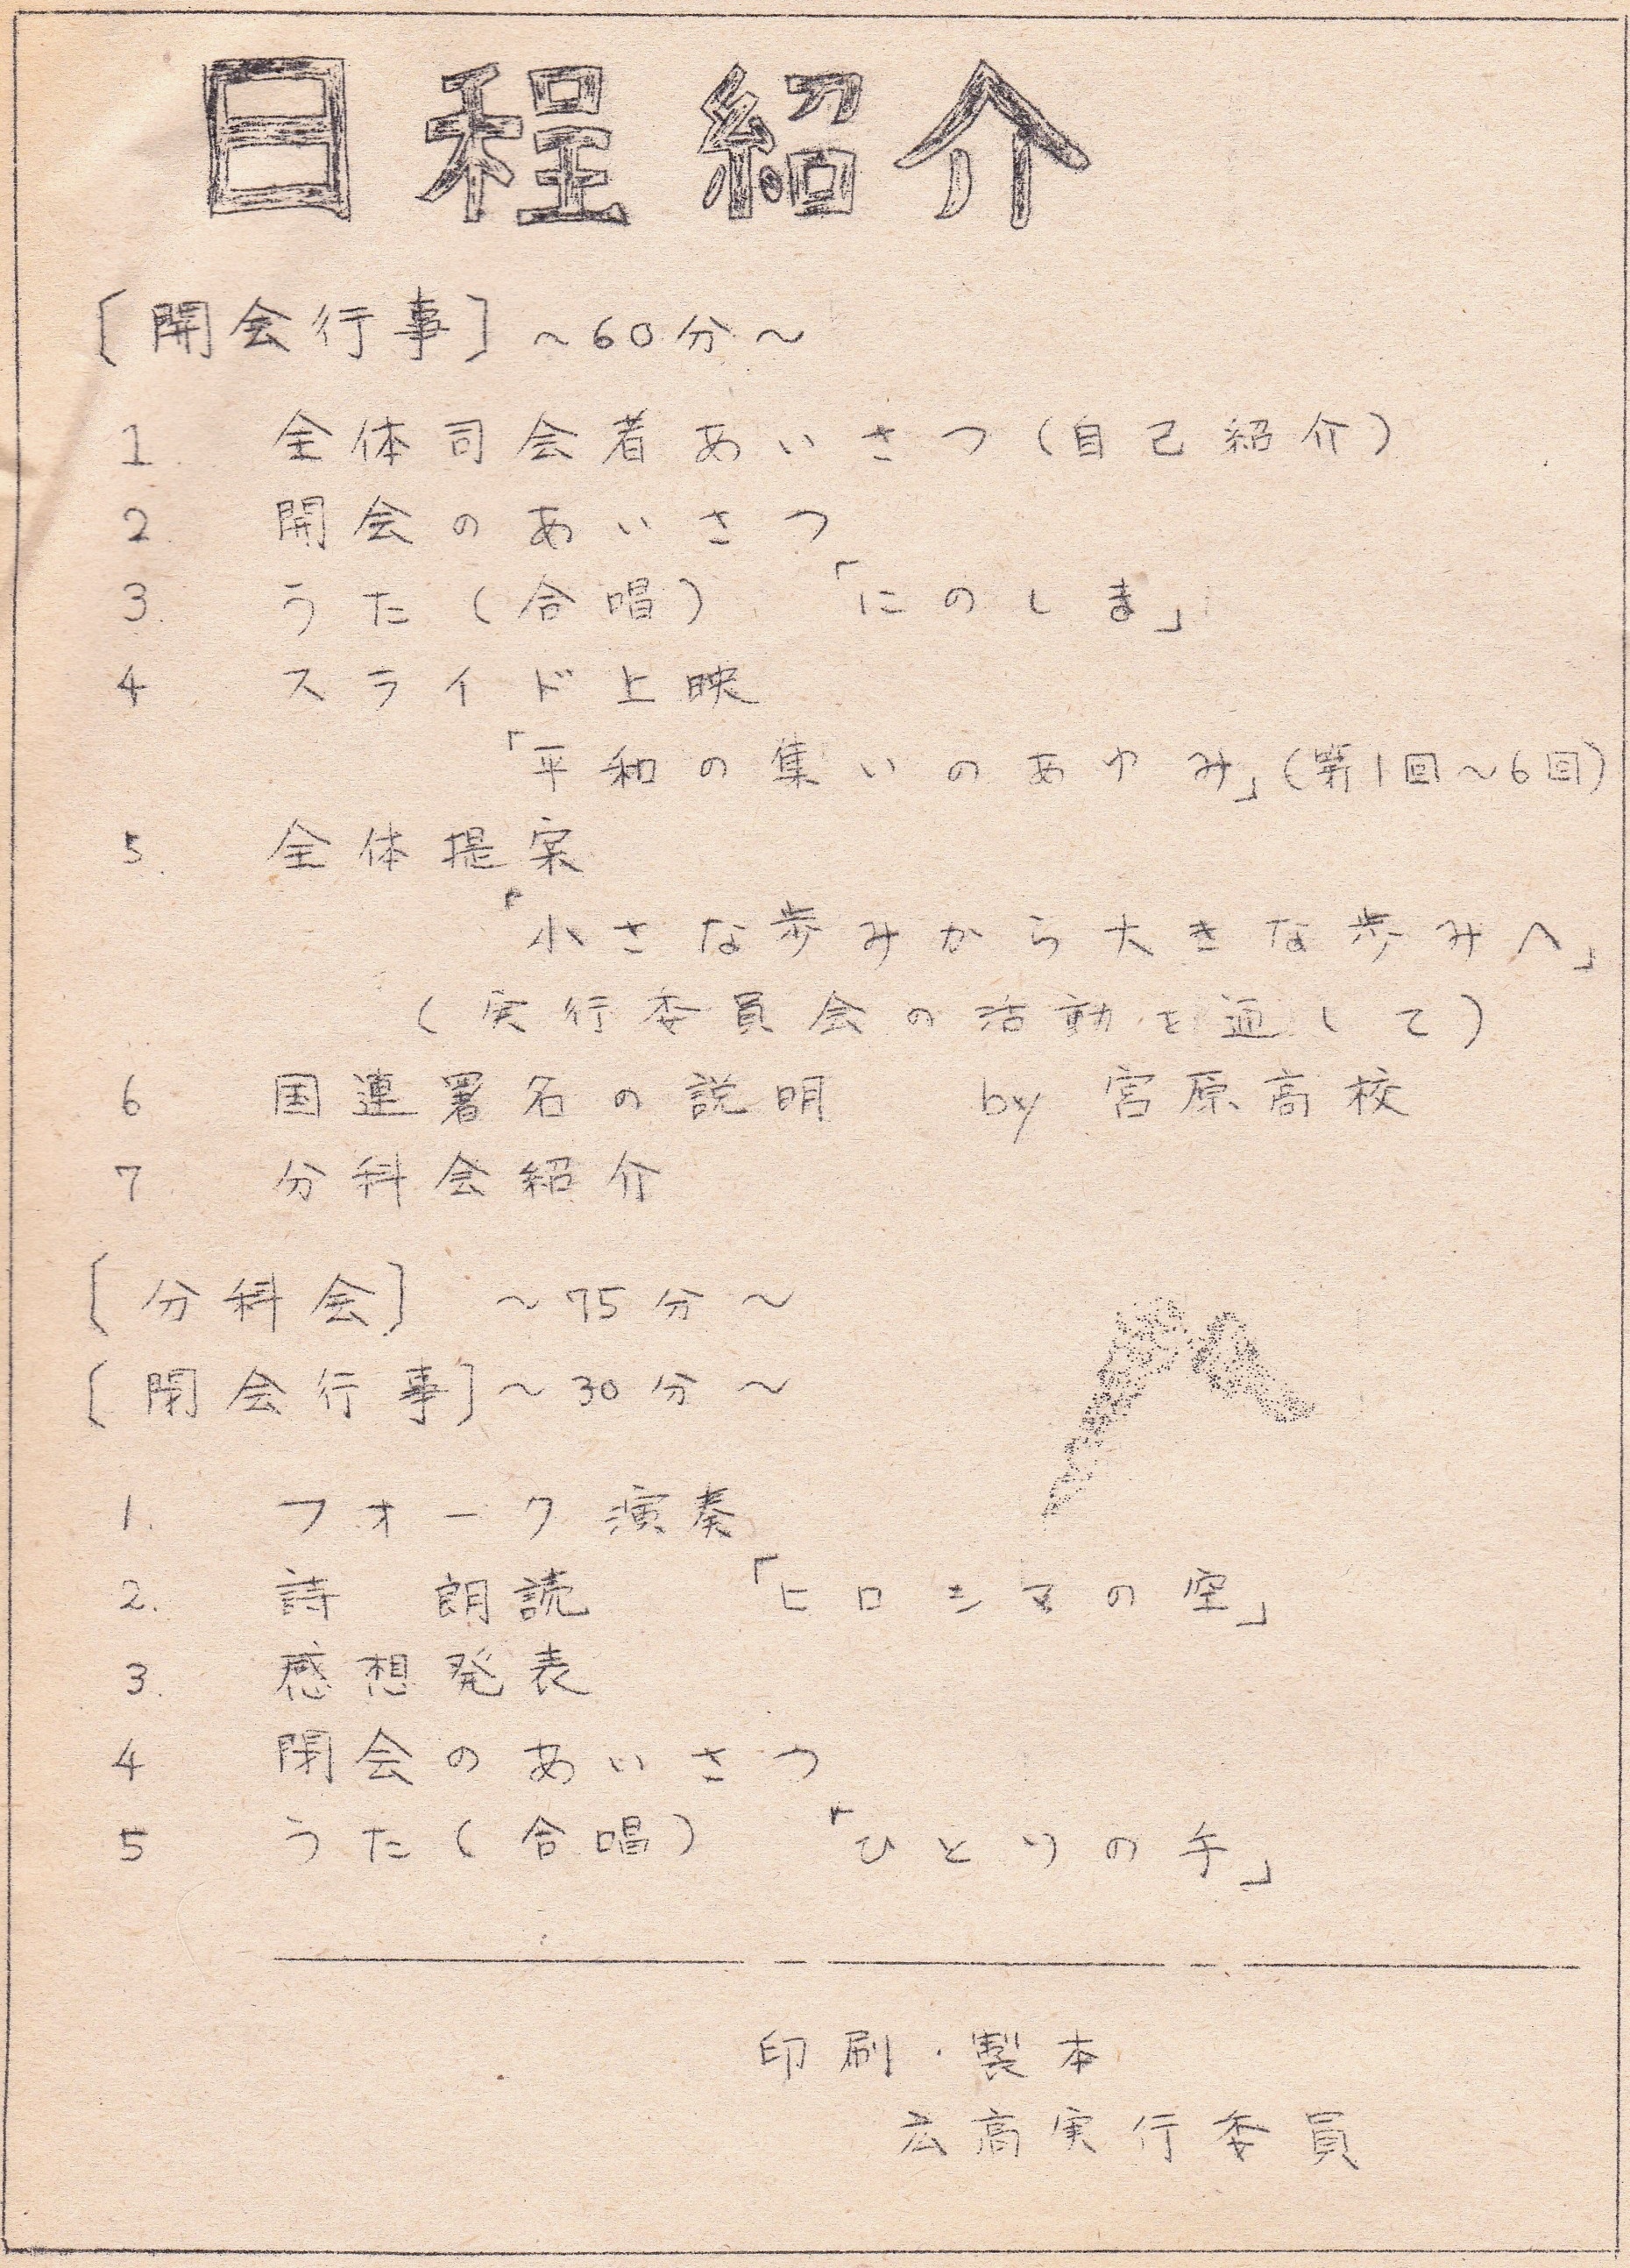 日程紹介
〔開会行事〕~60分~
1. 全体司会者あいさつ(自己紹介)
2. 開会のあいさつ
3. うた(合唱) 「にのしま」
4 スライド上映
「平和の集いのあゆみ」(第1回~6回)
5. 全体提案
「小さな歩みから大きな歩みへ」
(実行委員会の活動を通して)
6 国連署名の説明 by 宮原高校
7 分科会紹介
〔分科会〕 ~75分~
〔閉会行事〕~30分~
1. フォーク演奏
2. 詩 朗読 「ヒロシマの空」
3. 感想発表
4 閉会のあいさつ
5 うた(合唱) 「ひとりの手」
印刷・製本
広高実行委員